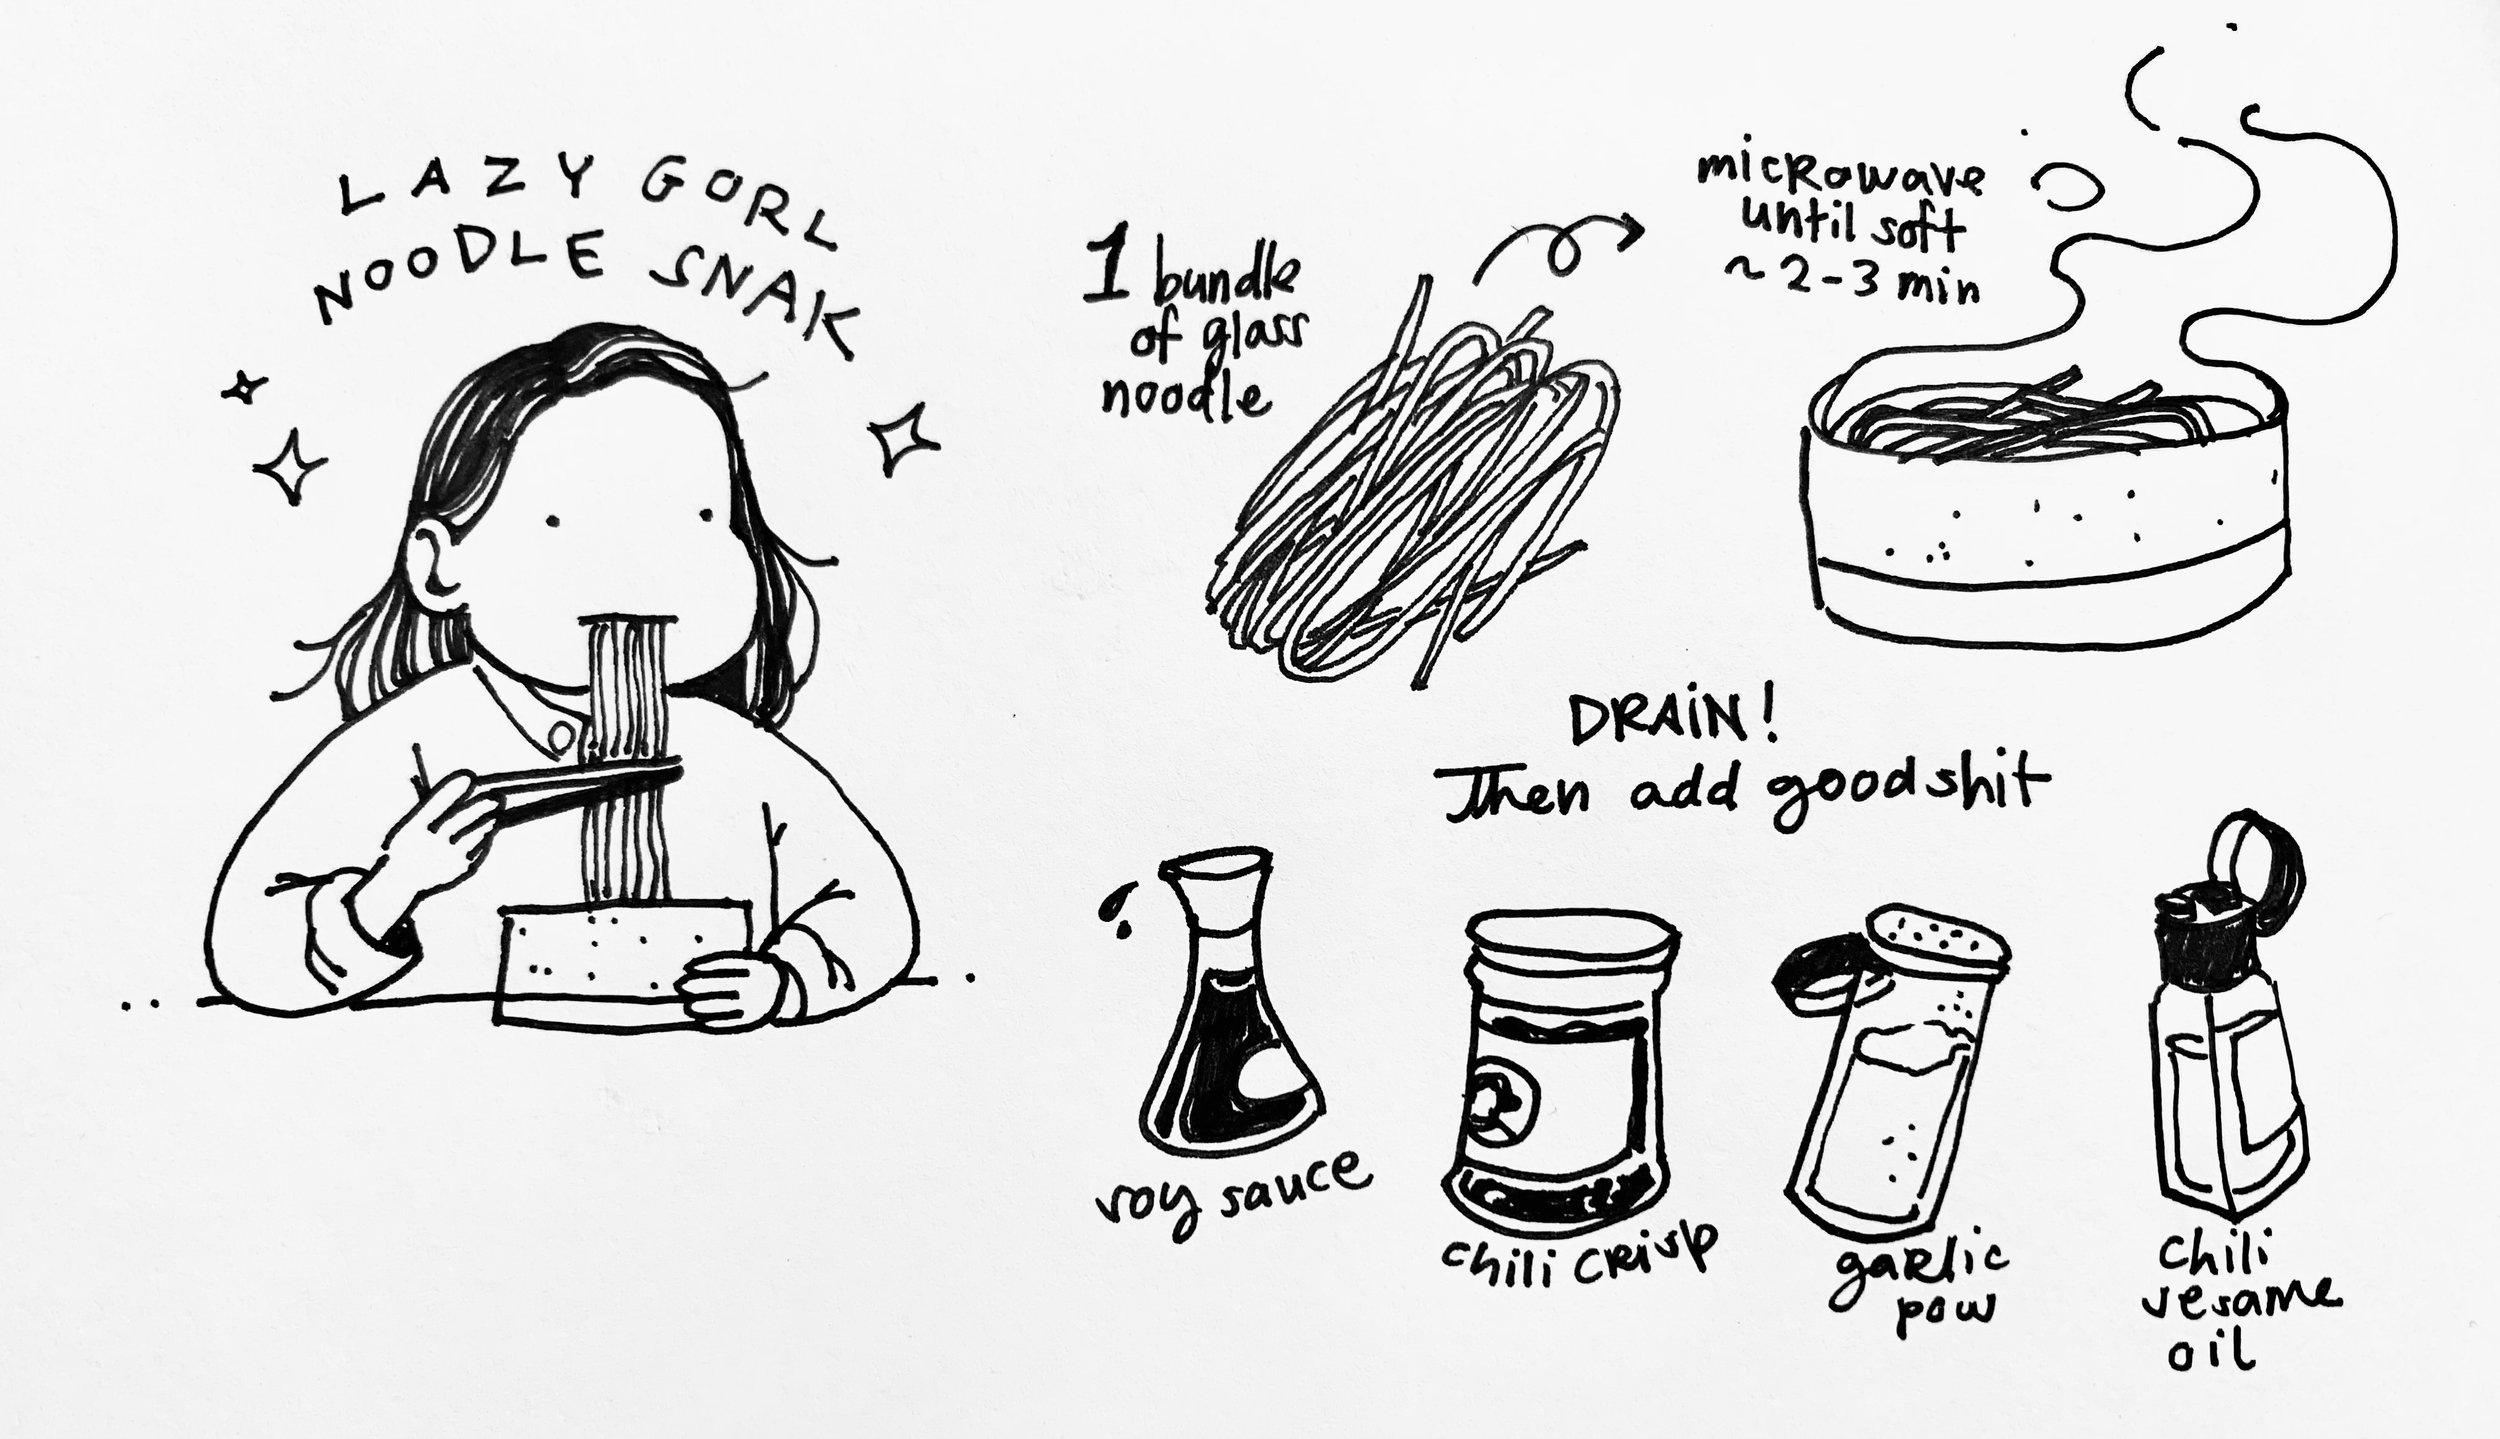 LAZY GORL
NOODLE SNAK
1 bundle
of glass
noodle
microwave
until soft
~ 2-3 min
DRAiN!
Then add good shit
soy sauce
chili crisp
garlic
pow
chili
sesame
oil